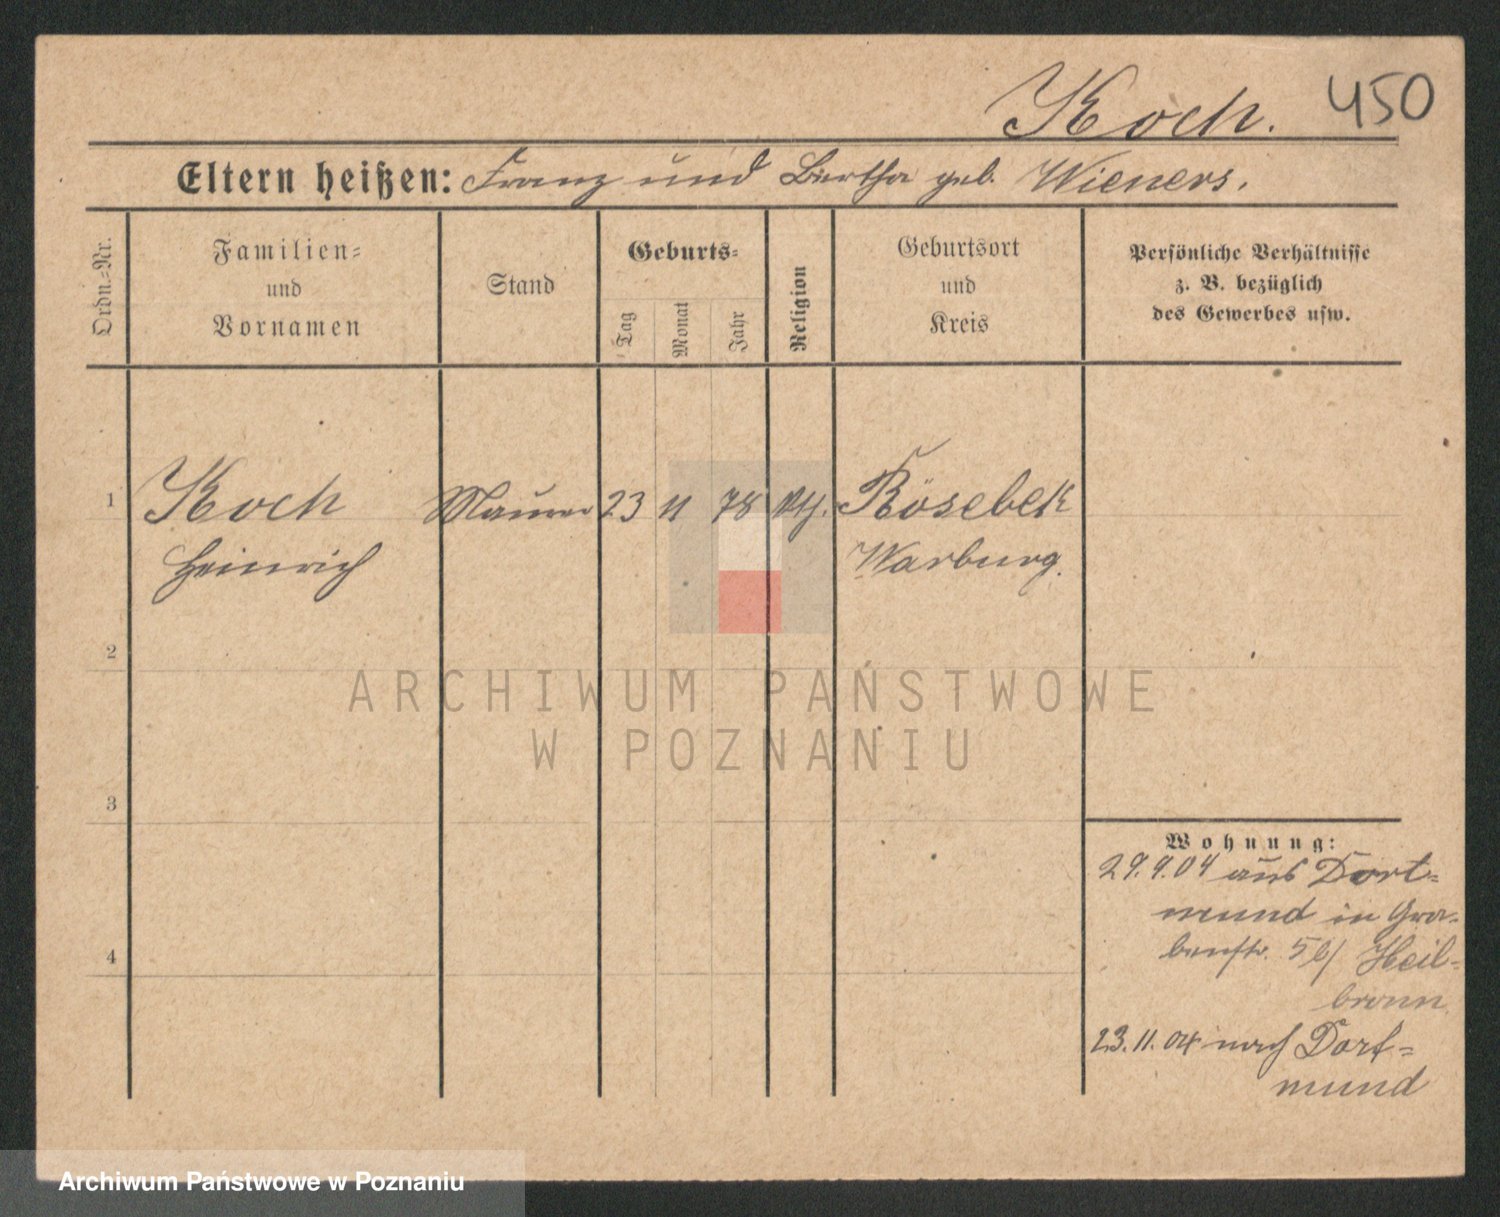 Koch. 450
Eltern heißen: Franz und Bertha geb. Wieners.
Ordn.-Nr.
Familien-
und
Vornamen
Stand
Geburts-
Tag
Monat
Jahr
Religion
Geburtsort
und
Kreis
Persönliche Verhältnisse
z. B. bezüglich
des Gewerbes usw.
1 Koch Maurer 23 11 78 kth. Rösebek
Heinrich Warburg.
2
ARCHIWUM PAŃSTWOWE
W POZNANIU
3
Wohnung:
29.9.04 aus Dort-
mund in Gra-
benstr. 5 b/ Heil-
bronn
4
23.11.04 nach Dort-
mund
Archiwum Państwowe w Poznaniu